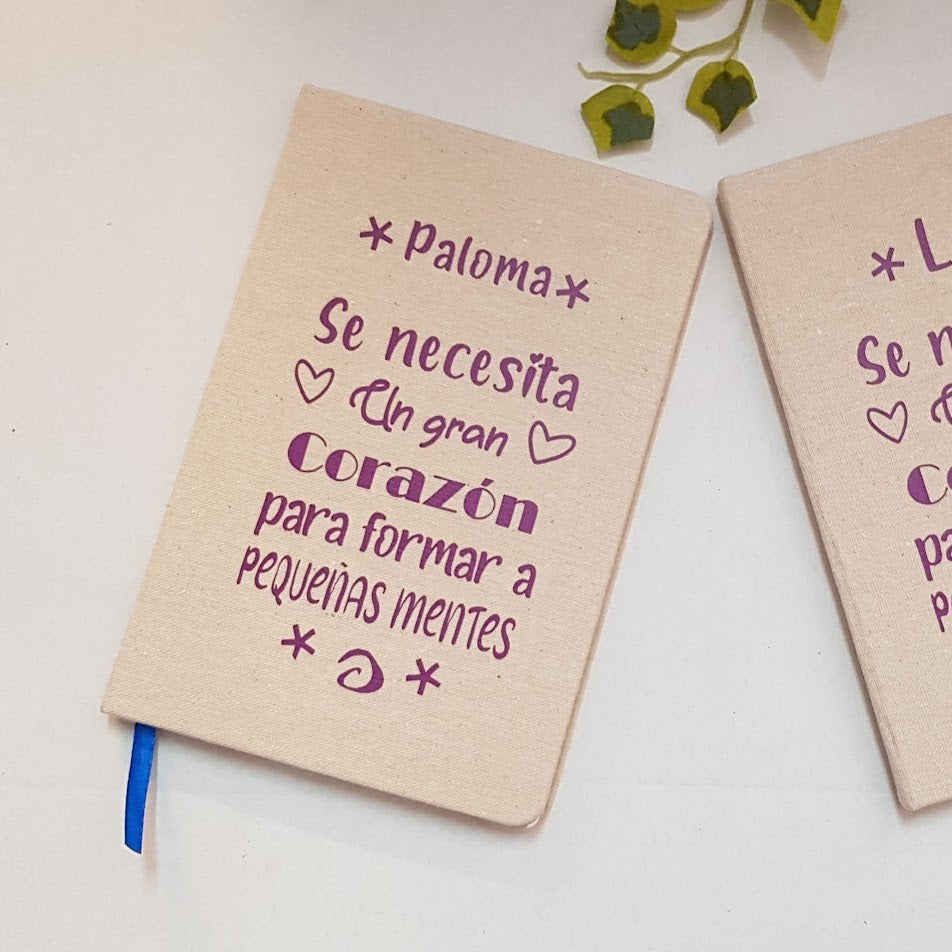 * Paloma *
Se necesita
Un gran
Corazón
para formar a
PEQUEÑAS MENTES
* L
Se n